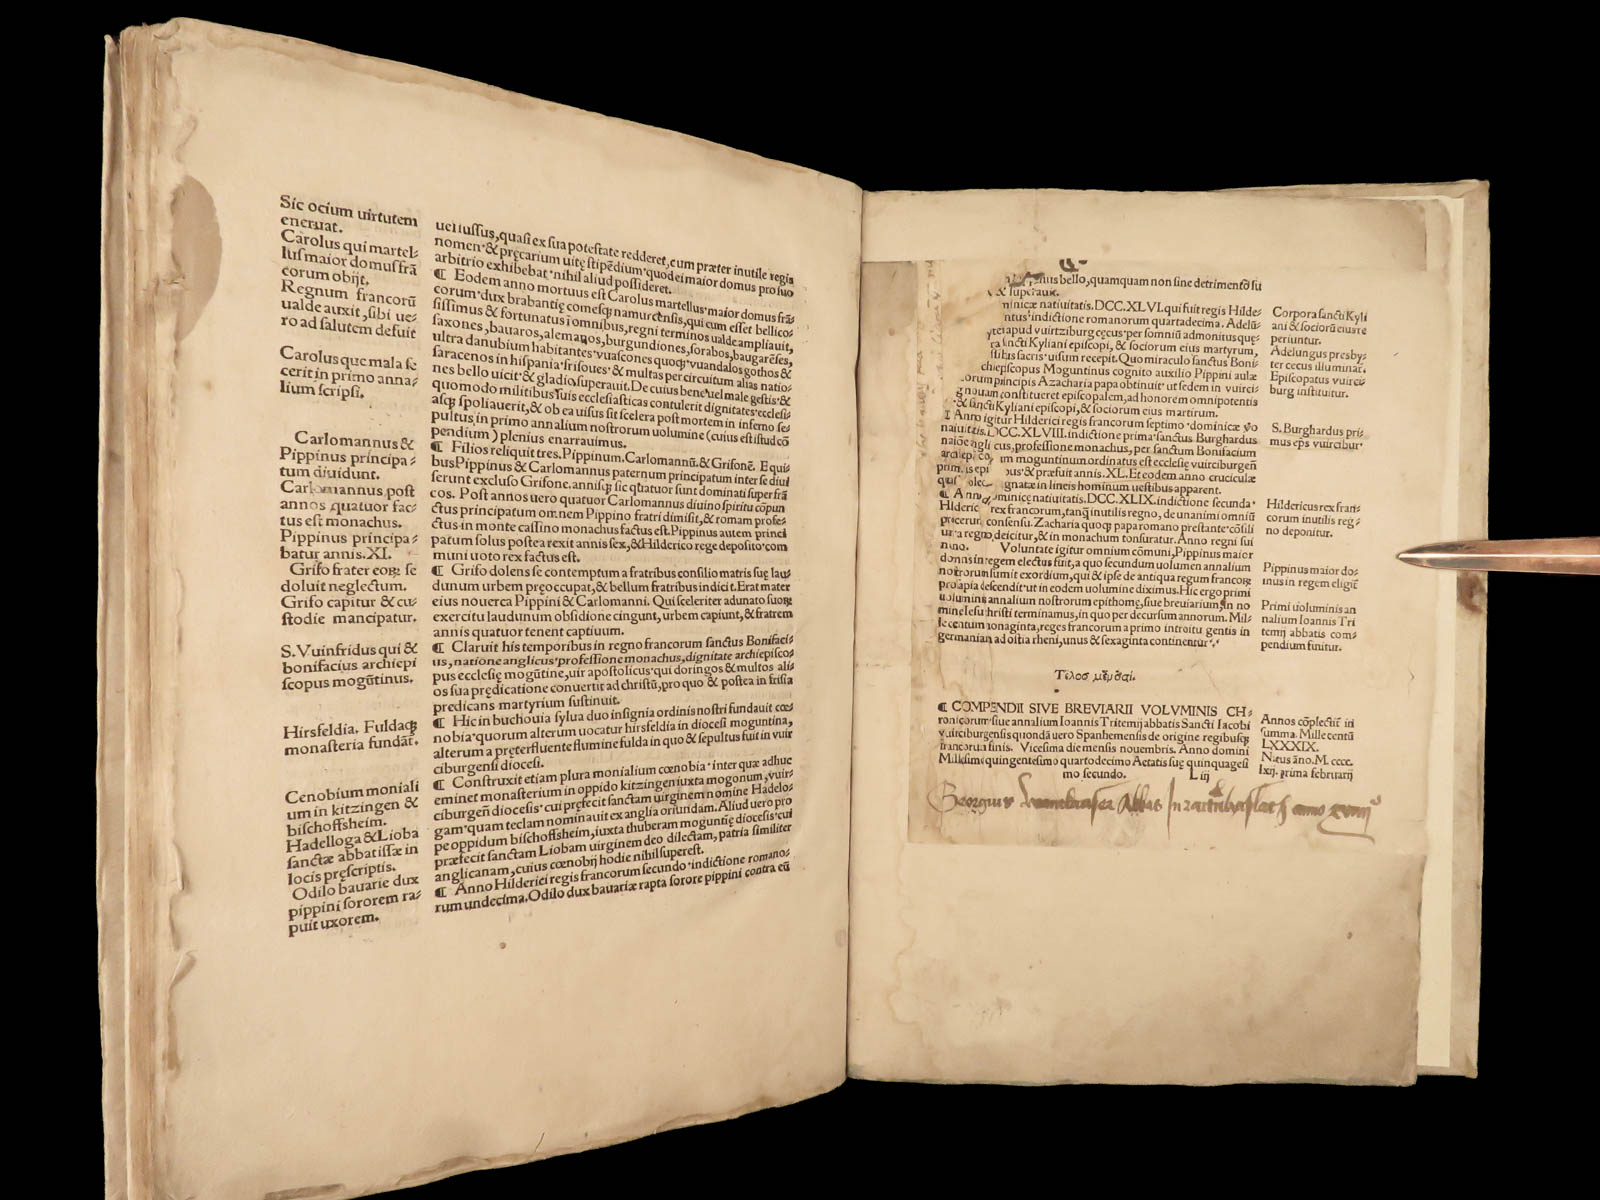 Sic ocium uirtutem
eneruat.
Carolus qui martel⸗
lus maior domus frā
corum obijt.
Regnum francorū
ualde auxit, sibi ue⸗
ro ad salutem defuit
Carolus que mala fe
cerit in primo anna⸗
lium scripsi.
Carlomannus &
Pippinus principa⸗
tum diuidunt.
Carlomannus post
annos quatuor fac⸗
tus est monachus.
Pippinus principa⸗
batur annis. XI.
Grifo frater eoꝝ se
doluit neglectum.
Grifo capitur & cu⸗
stodie mancipatur.
S. Vuinfridus qui &
bonifacius archiepi
scopus mogūtinus.
Hirsfeldia. Fuldaqꝫ
monasteria fundāt.
Cenobium moniali
um in kitzingen &
bischoffsheim.
Hadelloga & Lioba
sanctæ abbatissæ in
locis pręscriptis.
Odilo bauarie dux
pippini sororem ra⸗
puit uxorem.
uel iussus, quasi ex sua potestate redderet, cum præter inutile regis
nomen· & pręcarium uitę stipēdium· quod ei maior domus pro suo
arbitrio exhibebat· nihil aliud possideret.
¶ Eodem anno mortuus est Carolus martellus· maior domus frā⸗
corum· dux brabantię comesqꝫ namurcensis, qui cum esset bellico⸗
sissimus & fortunatus ī omnibus, regni terminos ualde ampliauit,
saxones, bauaros, alemanos, burgundiones, sorabos, baugarēses,
ultra danubium habitantes· vuascones quoqꝫ· vuandalos gothos &
saracenos in hispania· frisoues· & multas per circuitum alias natio⸗
nes bello uicit· & gladio superauit. De cuius bene uel male gestis· &
quomodo militibus suis ecclesiasticas contulerit dignitates· ecclesi⸗
asqꝫ spoliauerit, & ob ea uisus sit scelera post mortem in inferno se⸗
pultus in primo annalium nostrorum uolumine (cuius est istud cō
pendium) plenius enarrauimus.
¶ Filios reliquit tres. Pippinum. Carlomannū. & Grifonē. E qui⸗
bus Pippinus & Carlomannus paternum principatum inter se diui
serunt excluso Grifone, annisqꝫ sic quatuor sunt dominati super frā
cos. Post annos uero quatuor Carlomannus diuino spiritu cōpun
ctus principatum omnem Pippino fratri dimisit, & romam profe⸗
ctus in monte cassino monachus factus est. Pippinus autem princi
patum solus postea rexit annis sex, & Hilderico rege deposito· com
muni uoto rex factus est.
¶ Grifo dolens se contemptum a fratribus consilio matris suę lau⸗
dunum urbem pręoccupat, & bellum fratribus indicit. Erat mater
eius nouerca Pippini & Carlomanni. Qui sceleriter adunato suoꝝ
exercitu laudunum obsidione cingunt, urbem capiunt, & fratrem
annis quatuor tenent captiuum.
¶ Claruit his temporibus in regno francorum sanctus Bonifaci⸗
us, natione anglicus· professione monachus, dignitate archiepisco⸗
pus ecclesię mogūtine, uir apostolicus· qui doringos & multos ali⸗
os sua prędicatione conuertit ad christū, pro quo & postea in frisia
predicans martyrium sustinuit.
¶ Hic in buchouia sylua duo insignia ordinis nostri fundauit cœ⸗
nobia· quorum alterum uocatur hirsfeldia in diocesi moguntina,
alterum a pręterfluente flumine fulda in quo & sepultus fuit in vuir
ciburgensi diocesi.
¶ Construxit etiam plura monialium cœnobia· inter quæ adhuc
eminet monasterium in oppido kitzingen iuxta mogonum, vuir⸗
ciburgeñ diocesis· cui pręfecit sanctam uirginem nomine Hadelo⸗
gam· quam teclam nominauit ex anglia oriundam. Aliud uero pro
pe oppidum bischoffsheim, iuxta thuberam moguntię diocesis· cui
præfecit sanctam Liobam uirginem deo dilectam, patria similiter
anglicanam, cuius cœnobij hodie nihil superest.
¶ Anno Hilderici regis francorum secundo· indictione romano⸗
rum undecima. Odilo dux bauariæ rapta sorore pippini contra eū
bello, quamquam non sine detrimento su
& superauit.
natiuitatis. DCC. XLVI. qui fuit regis Hilde⸗
indictione romanorum quartadecima. Adelū⸗
apud vuirtziburg cęcus· per somniū admonitus que⸗
sancti Kyliani episcopi, & sociorum eius martyrum,
sacris· uisum recepit. Quo miraculo sanctus Boni⸗
chiepiscopus Moguntinus cognito auxilio Pippini aulæ
corum principis A zacharia papa obtinuit· ut sedem in vuirci⸗
g nouam constitueret episcopalem, ad honorem omnipotentis
& sancti Kyliani episcopi, & sociorum eius martirum.
¶ Anno igitur Hilderici regis francorum septimo· dominicæ ꝟo
natiuitatis. DCC. XLVIII. indictione prima· sanctus Burghardus
cus, professione monachus, per sanctum Bonifacium
um moguntinum ordinatus est ecclesię vuirciburgeñ
& præfuit annis. XL. Et eodem anno cruciculæ
gnatæ in lineis hominum uestibus apparent.
¶ Anno dominicę natiuitatis. DCC. XLIX. indictione secunda·
Hilderic rex francorum, tanqꝫ inutilis regno, de unanimi omniū
procerum consensu. Zacharia quoqꝫ papa romano prestante cōsili
um a regno deicitur, & in monachum tonsuratur. Anno regni sui
nono. Voluntate igitur omnium cōmuni, Pippinus maior
domus in regem electus fuit, a quo secundum uolumen annalium
nostrorum sumit exordium, qui & ipse de antiqua regum francoꝝ
prosapia descendit· ut in eodem uolumine diximus. Hic ergo primi
uoluminis annalium nostrorum epithomę, siue breuiarium, in no
mine Iesu christi terminamus, in quo per decursum annorum. Mil⸗
le centum nonaginta, reges francorum a primo introitu gentis in
germaniam ad ostia rheni, unus & sexaginta continentur·.·
¶ COMPENDII SIVE BREVIARII VOLVMINIS CH⸗
ronicorum siue annalium Ioannis Tritemij abbatis Sancti Iacobi
vuirciburgensis quondā uero Spanhemensis de origine regibusqꝫ
francorum finis. Vicesima die mensis nouembris. Anno domini
Millesimi quingentesimo quartodecimo Aetatis suę quinquagesi
mo secundo. L iij
Corpora sancti Kyli
ani & sociorū eius re
periuntur.
Adelungus presby⸗
ter cecus illuminať.
Episcopatus vuirci⸗
burg instituitur.
S. Burghardus pri⸗
mus ep̄s vuircibur·
Hildericus rex fran⸗
corum inutilis reg⸗
no deponitur.
Pippinus maior do⸗
mus in regem eligiť
Primi uoluminis an
nalium Ioannis Tri
temij abbatis com⸗
pendium finitur.
Annos cōplectiť iri
summa. Mille centū
LXXXIX.
Natus āno. M. cccc.
lxij. prima februarij
Georgius Abbas In